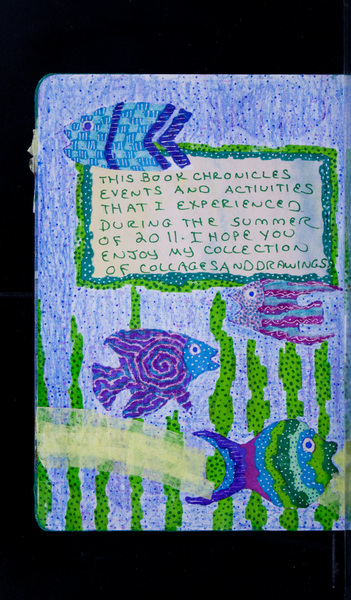 THIS BOOK CHRONICLES
EVENTS AND ACTIVITIES
THAT I EXPERIENCED
DURING THE SUMMER
OF 2011. I HOPE YOU
ENJOY MY COLLECTION
OF COLLAGES AND DRAWINGS